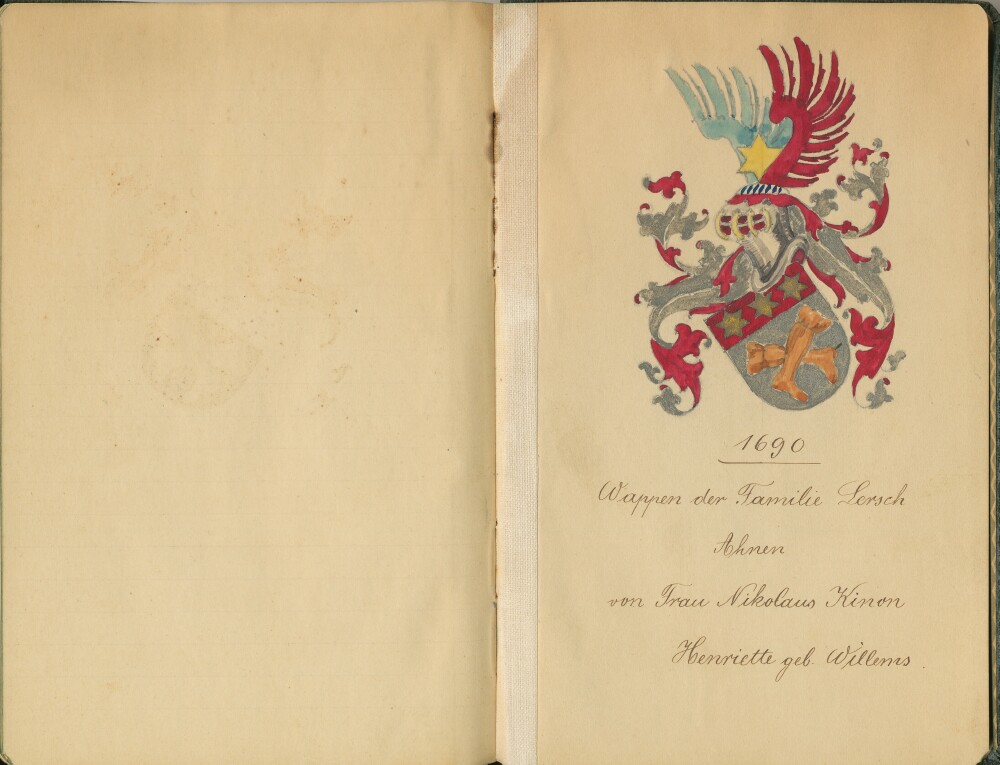 1690
Wappen der Familie Lersch
Ahnen
von Frau Nikolaus Kinon
Henriette geb. Willems.